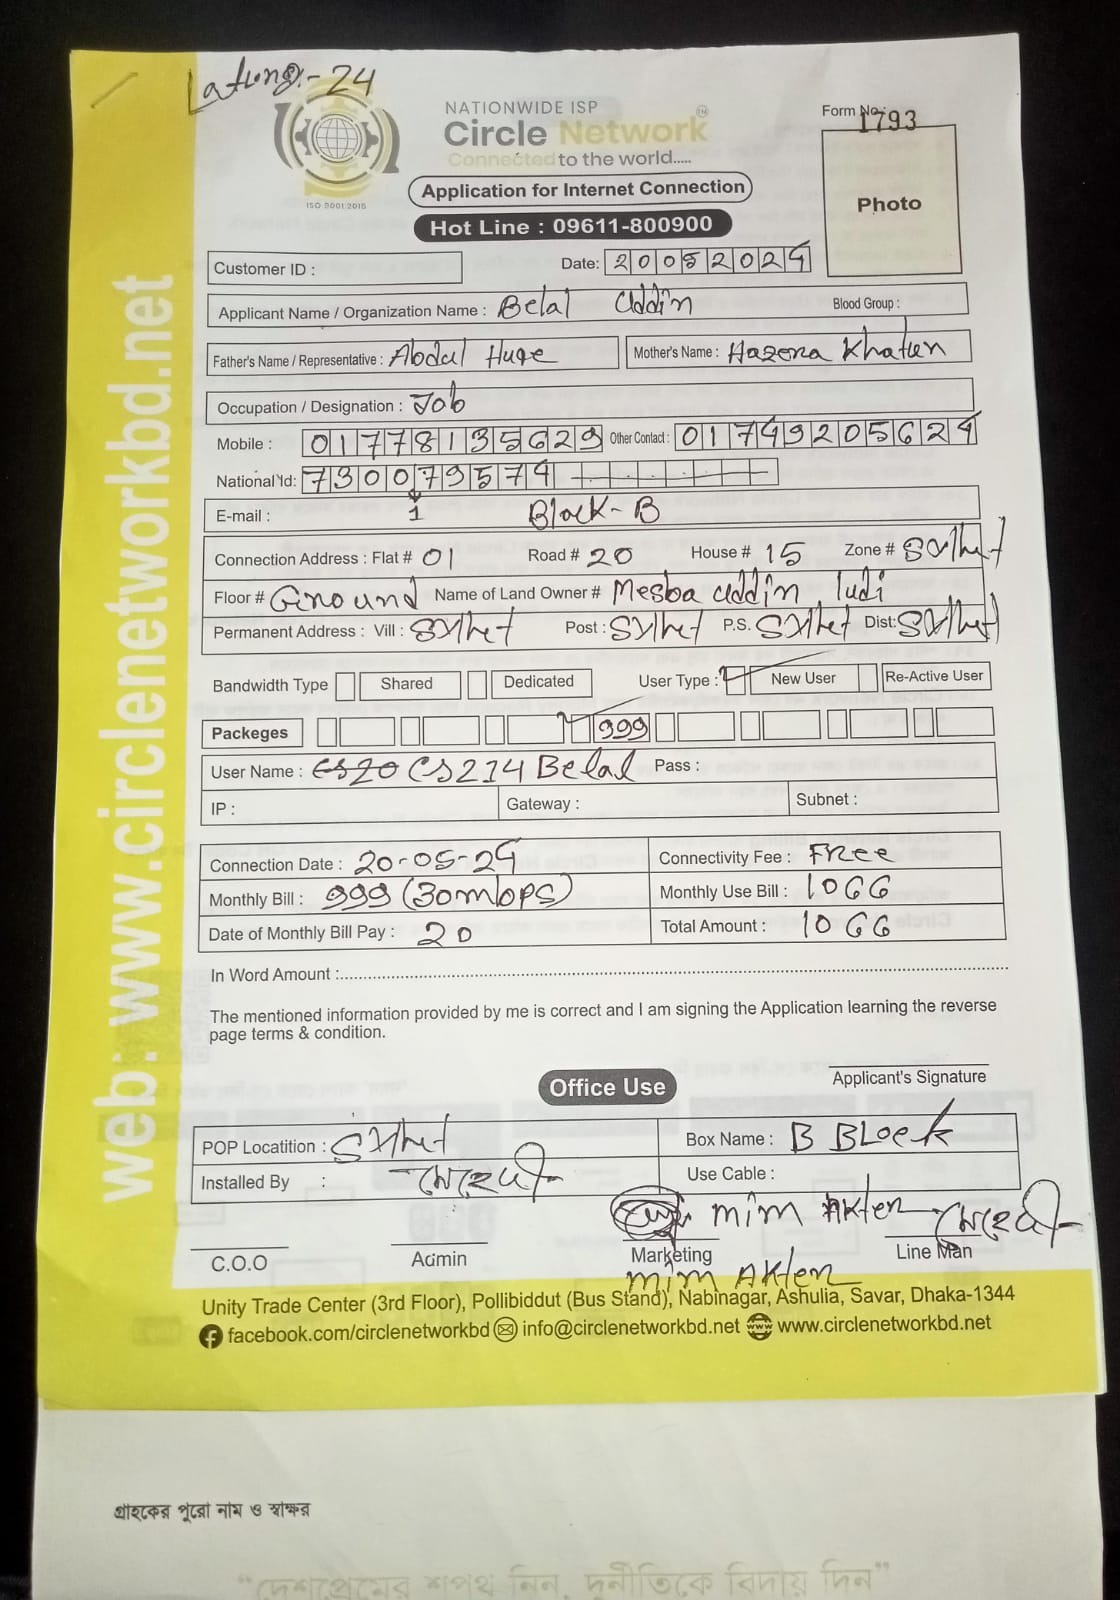 Latung:- 24
NATIONWIDE ISP
Circle Network
Connected to the world.....
ISO 9001:2015
Form No: 1793
Photo
Application for Internet Connection
Hot Line : 09611-800900
Customer ID :
Date: 20052024
Applicant Name / Organization Name : Belal Uddin Blood Group :
Father's Name / Representative : Abdul Huqe Mother's Name : Hazera Khatun
Occupation / Designation : Job
Mobile : 01778135629 Other Contact : 01749205624
National Id: 7300793574
1
E-mail : Block-B
Connection Address : Flat # 01 Road # 20 House # 15 Zone # Sylhet
Floor # Ground Name of Land Owner # Mesba Uddin ludi
Permanent Address : Vill : Sylhet Post : Sylhet P.S. Sylhet Dist: Sylhet
Bandwidth Type Shared Dedicated User Type : New User Re-Active User
Packeges 999
User Name : CS20 CS214 Belal Pass :
IP : Gateway : Subnet :
Connection Date : 20-05-24 Connectivity Fee : Free
Monthly Bill : 999 (30mbps) Monthly Use Bill : 1066
Date of Monthly Bill Pay : 20 Total Amount : 1066
In Word Amount :
The mentioned information provided by me is correct and I am signing the Application learning the reverse
page terms & condition.
Applicant's Signature
Office Use
POP Locatition : Sylhet Box Name : B BLock
Installed By : মেহেদী Use Cable :
mim Akter মেহেদী
C.O.O Admin Marketing Line Man
mim Akter
Unity Trade Center (3rd Floor), Pollibiddut (Bus Stand), Nabinagar, Ashulia, Savar, Dhaka-1344
facebook.com/circlenetworkbd info@circlenetworkbd.net www.circlenetworkbd.net
web: www.circlenetworkbd.net
গ্রাহকের পুরো নাম ও স্বাক্ষর
“দেশপ্রেমের শপথ নিন, দুর্নীতিকে বিদায় দিন”